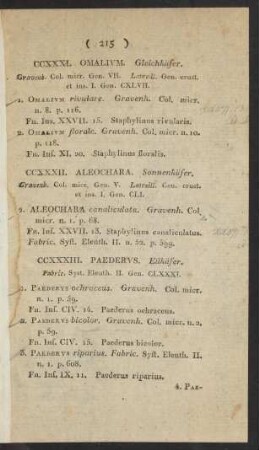 ( 215 )
CCXXXI. OMALIVM. Gleichkäfer.
Gravenh. Col. micr. Gen. VII. Latreill. Gen. crust.
et ins. I. Gen. CXLVII.
1. OMALIVM rivulare. Gravenh. Col. micr.
n. 8. p. 116.
FN. INS. XXVII. 15. Staphylinus rivularis.
2. OMALIVM florale. Gravenh. Col. micr. n. 10.
p. 118.
FN. INS. XI. 20. Staphylinus floralis.
CCXXXII. ALEOCHARA. Sonnenkäfer.
Gravenh. Col. micr. Gen. V. Latreill. Gen. crust.
et ins. I. Gen. CLI.
1. ALEOCHARA canaliculata. Gravenh. Col.
micr. n. 1. p. 68.
FN. INS. XXVII. 13. Staphylinus canaliculatus.
Fabric. Syst. Eleuth. II. n. 52. p. 599.
CCXXXIII. PAEDERVS. Eßkäfer.
Fabric. Syst. Eleuth. II. Gen. CLXXXI.
1. PAEDERVS ochraceus. Gravenh. Col. micr.
n. 1. p. 59.
FN. INS. CIV. 14. Paederus ochraceus.
2. PAEDERVS bicolor. Gravenh. Col. micr. n. 2.
p. 59.
FN. INS. CIV. 15. Paederus bicolor.
3. PAEDERVS riparius. Fabric. Syst. Eleuth. II.
n. 1. p. 608.
FN. INS. IX. 11. Paederus riparius.
4. PAE-